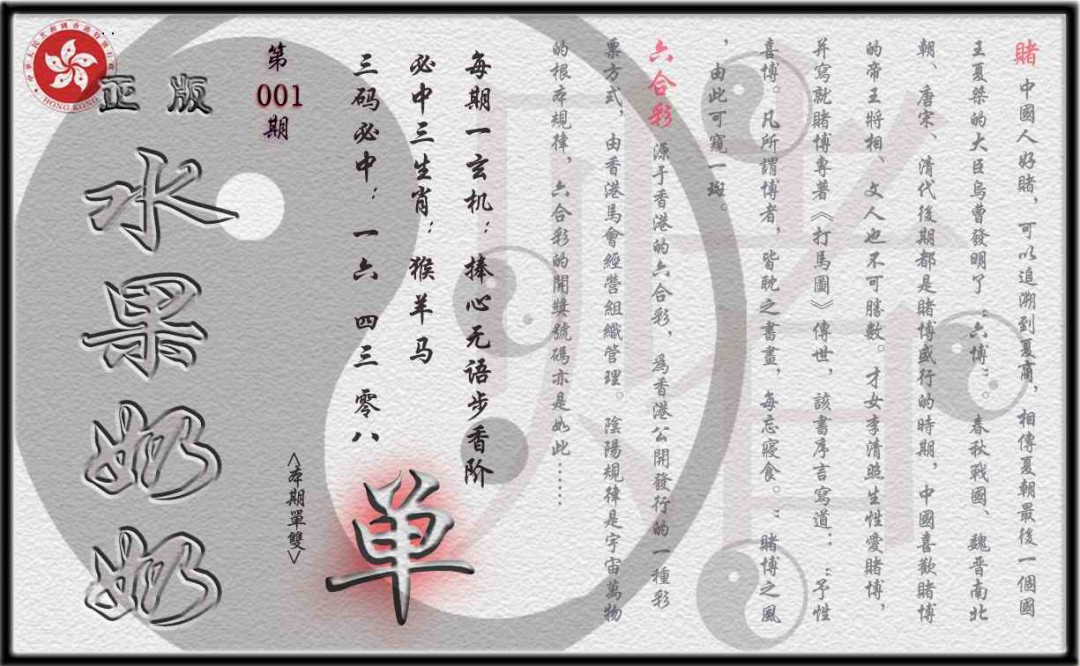 賭 中國人好賭，可以追溯到夏商，相傳夏朝最後一個國
王夏桀的大臣烏曹發明了“六博”。春秋戰國、魏晋南北
朝、唐宋、清代後期都是賭博盛行的時期，中國喜歡賭博
的帝王將相、文人也不可勝數。才女李清照生性愛賭博，
并寫就賭博專著《打馬圖》傳世，該書序言寫道：“予性
喜博。凡所謂博者，皆耽之書畫，每忘寢食。”賭博之風
，由此可窺一斑。
六合彩 源于香港的六合彩，爲香港公開發行的一種彩
票方式，由香港馬會經營組織管理。陰陽規律是宇宙萬物
的根本規律，六合彩的開獎號碼亦是如此……
每期一玄机：捧心无语步香阶
必中三生肖：猴羊马
三码必中：一六 四三 零八
单
<本期單雙>
第
001
期
正版
水果奶奶
HONG KONG
賭